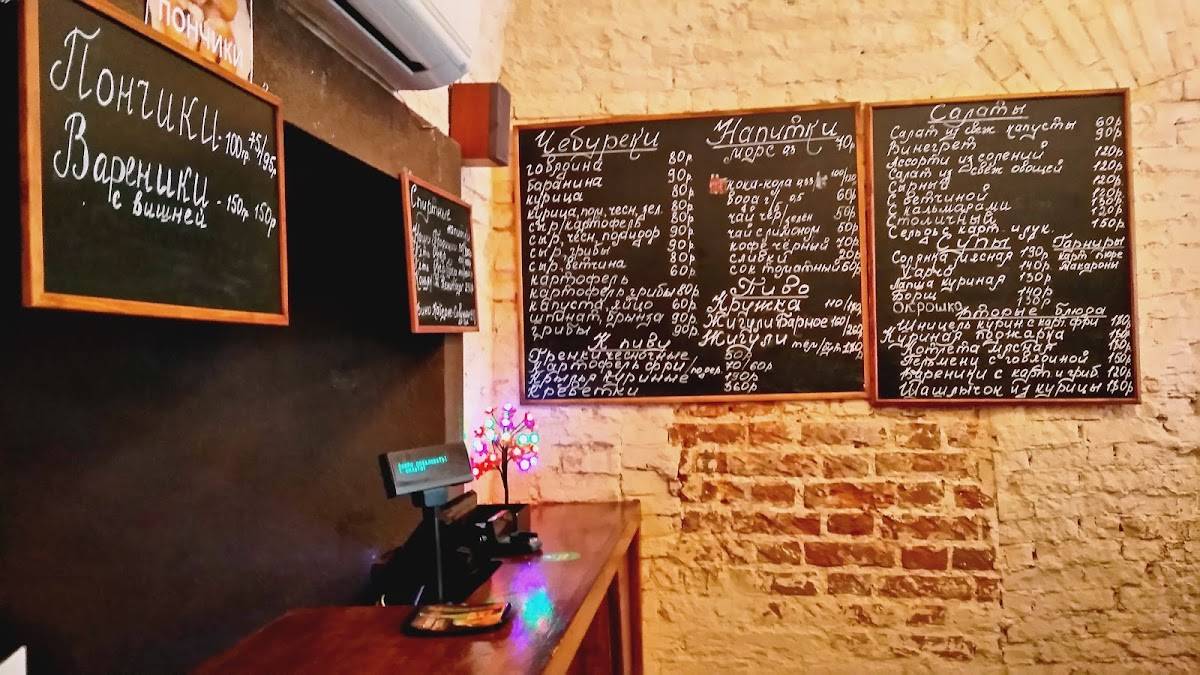 ПОНЧИКИ
Пончики - 100гр. 75/95р
Вареники - 150р. 150р
с вишней
Спиртные
напитки
Чебуреки
говядина 80р
баранина 90р
курица 80р
курица, пом, чесн, зел. 80р
сыр/картофель 80р
сыр, чесн, помидор 90р
сыр, грибы 90р
сыр, ветчина 80р
картофель 60р
картофель грибы 80р
капуста, яйцо 60р
шпинат, брынза 90р
грибы 90р
К пиву
Гренки чесночные 50р
Картофель фри/подер. 70/60р
Крылья куриные 140р
Креветки 360р
Напитки
морс 0,3 70р
кока-кола 0,33 100/120
вода г/ 0,5 60р
чай чер/зелён 50р
чай с лимоном 60р
кофе чёрный 70р
сливки 20р
сок томатный 60р
Пиво
Кружка 110/190р
Жигули барное 160/260р
Жигули
Салаты
Салат из свеж капусты 60р
Винегрет 90р
Ассорти из солений 120р
Салат из свеж овощей 120р
Сырный 120р
С ветчиной
С кальмарами 130р
Столичный 120р
Сельдь с карт. и лук. 150р
Супы
Солянка мясная 190р
Харчо 140р
Лапша куриная 130р
Борщ 140р
Окрошка 130р
Гарниры
карт пюре
макароны
Вторые блюда
Шницель курин с карт. фри
Куриная поджарка
Котлета мясная
Пельмени с говядиной 150р
Вареники с карт и гриб 120р
Шашлычок из курицы 130р